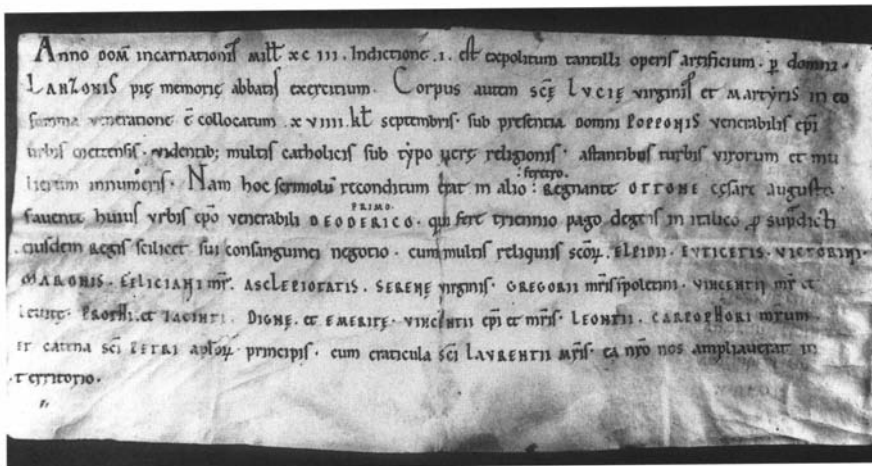 Anno dom̅ incarnationis mill̅ xc iii. Indictione .i. est expolitum tantilli operis artificium. p̱ domni.
LANZONIS pię memorię abbatis exercitium. Corpus autem sc̅ę LVCIĘ virginis et Martyris in eo
summa veneratione e̅ collocatum x viiii. kl̅ septembris. sub presentia domni POPPONIS venerabilis ep̅i
urbis mettensis. videntib; multis catholicis sub typo verę religionis. astantibus turbis virorum et mu
lierum innumeris. Nam hoc
: feretro.
reconditum erat in alio : Regnante OTTONE cęsare augusto.
PRIMO.
favente huius urbis ep̅o venerabili DEODERICO. qui fere triennio pago degens in italico p̱ sup̅dicti
eiusdem Regis scilicet sui consanguinei negotio. cum multis reliquiis sc̅oꝝ. ELPIDII. EVTICETIS. VICTORINI.
MARONIS. FELICIANI mr̅. ASCLEPIOTATIS. SERENĘ virginis. GREGORII mr̅is spoletini. VINCENTII mr̅ et
levitę. PROTHI. et IACINTI. DIGNĘ. et EMERITĘ. VINCENTII ep̅i et mr̅is. LEONTII. CARPOPHORI mr̅um.
Et catena sc̅i PETRI ap̅loꝝ principis. cum craticula sc̅i LAVRENTII mr̅is. ea nr̅o nos ampliaverat in
.territorio.